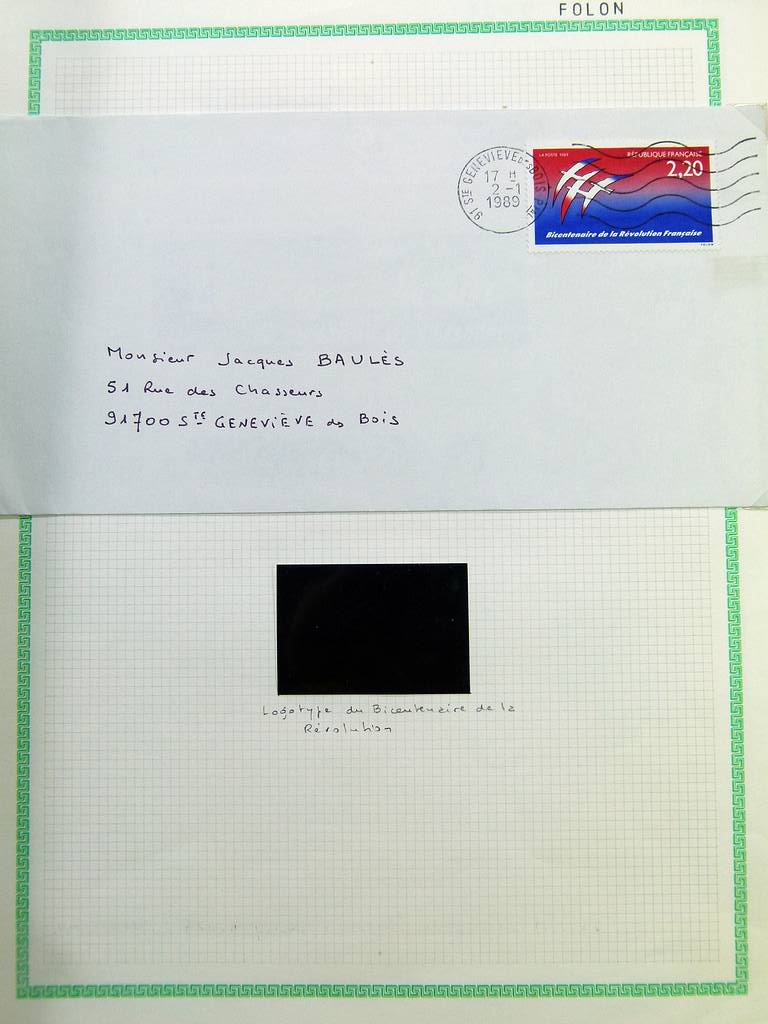 FOLON
91 STE GENEVIEVE DES BOIS PAL
17 H
2 -1
1989
LA POSTE 1989
RÉPUBLIQUE FRANÇAISE
2,20
Bicentenaire de la Révolution Française
FOLON
Monsieur Jacques BAULÈS
51 Rue des Chasseurs
91700 STE GENEVIÈVE des Bois
Logotype du Bicentenaire de la
Révolution